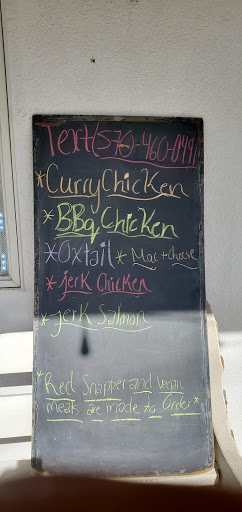 Text (576)-460-0491
*Curry Chicken
*BBq Chicken
*Oxtail *Mac + cheese
*jerk Chicken
*jerk Salmon
*Red Snapper and vegan
meals are made to Order*